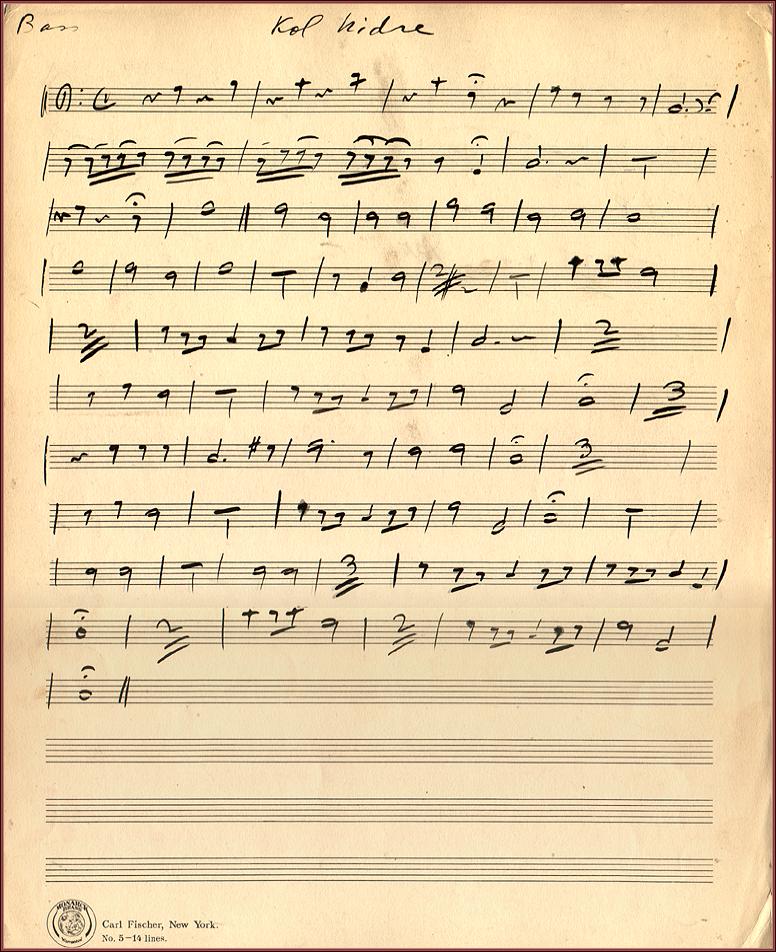 Bass Kol Nidre
2
2 2
3
3
3
2 2
MONARCH BRAND
Carl Fischer, New York.
No. 5—14 lines.